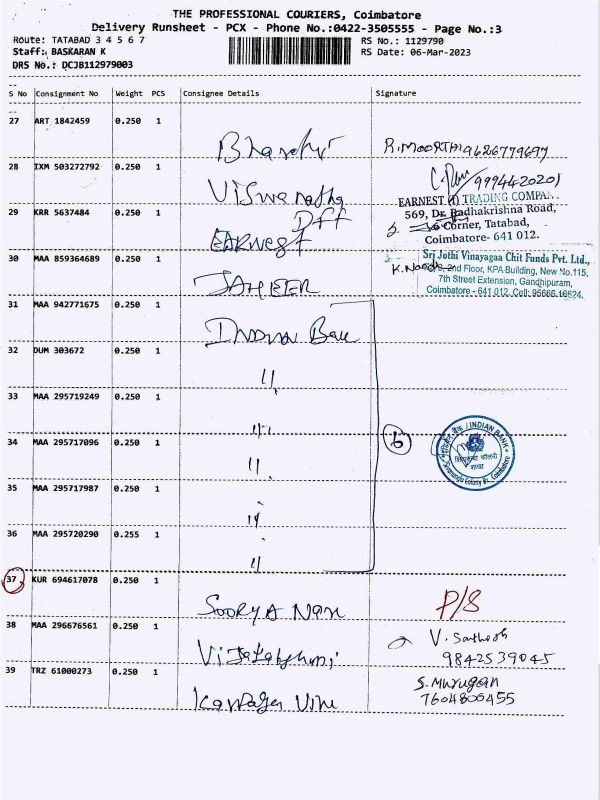 THE PROFESSIONAL COURIERS, Coimbatore
Delivery Runsheet - PCX - Phone No.:0422-3505555 - Page No.:3
Route: TATABAD 3 4 5 6 7 RS No.: 1129790
Staff: BASKARAN K RS Date: 06-Mar-2023
DRS No.: DCJB112979003
S No Consignment No Weight PCS Consignee Details Signature
27 ART 1842459 0.250 1
R. MOORTHI 9626779697
28 IXM 503272792 0.250 1
Viswanatha 9994420201
EARNEST (I) TRADING COMPANY
29 KRR 5637484 0.250 1 569, Dr. Radhakrishna Road,
EARNEST Corner, Tatabad,
Coimbatore- 641 012.
30 MAA 859364689 0.250 1 Sri Jothi Vinayagaa Chit Funds Pvt. Ltd.,
2nd Floor, KPA Building, New No.115,
JAHEER 7th Street Extension, Gandhipuram,
Coimbatore - 641 012. Cell: 95666 16624.
31 MAA 942771675 0.250 1
32 DUM 303672 0.250 1
"
33 MAA 295719249 0.250 1
"
34 MAA 295717096 0.250 1 6 INDIAN BANK
" Sivananda Colony Br. Coimbatore
35 MAA 295717987 0.250 1
"
36 MAA 295720290 0.255 1
"
37 KUR 694617078 0.250 1
SOORYA P/S
38 MAA 296676561 0.250 1 V. Sathosh
9842539045
39 TRZ 61000273 0.250 1 S. Murugan
7604806455